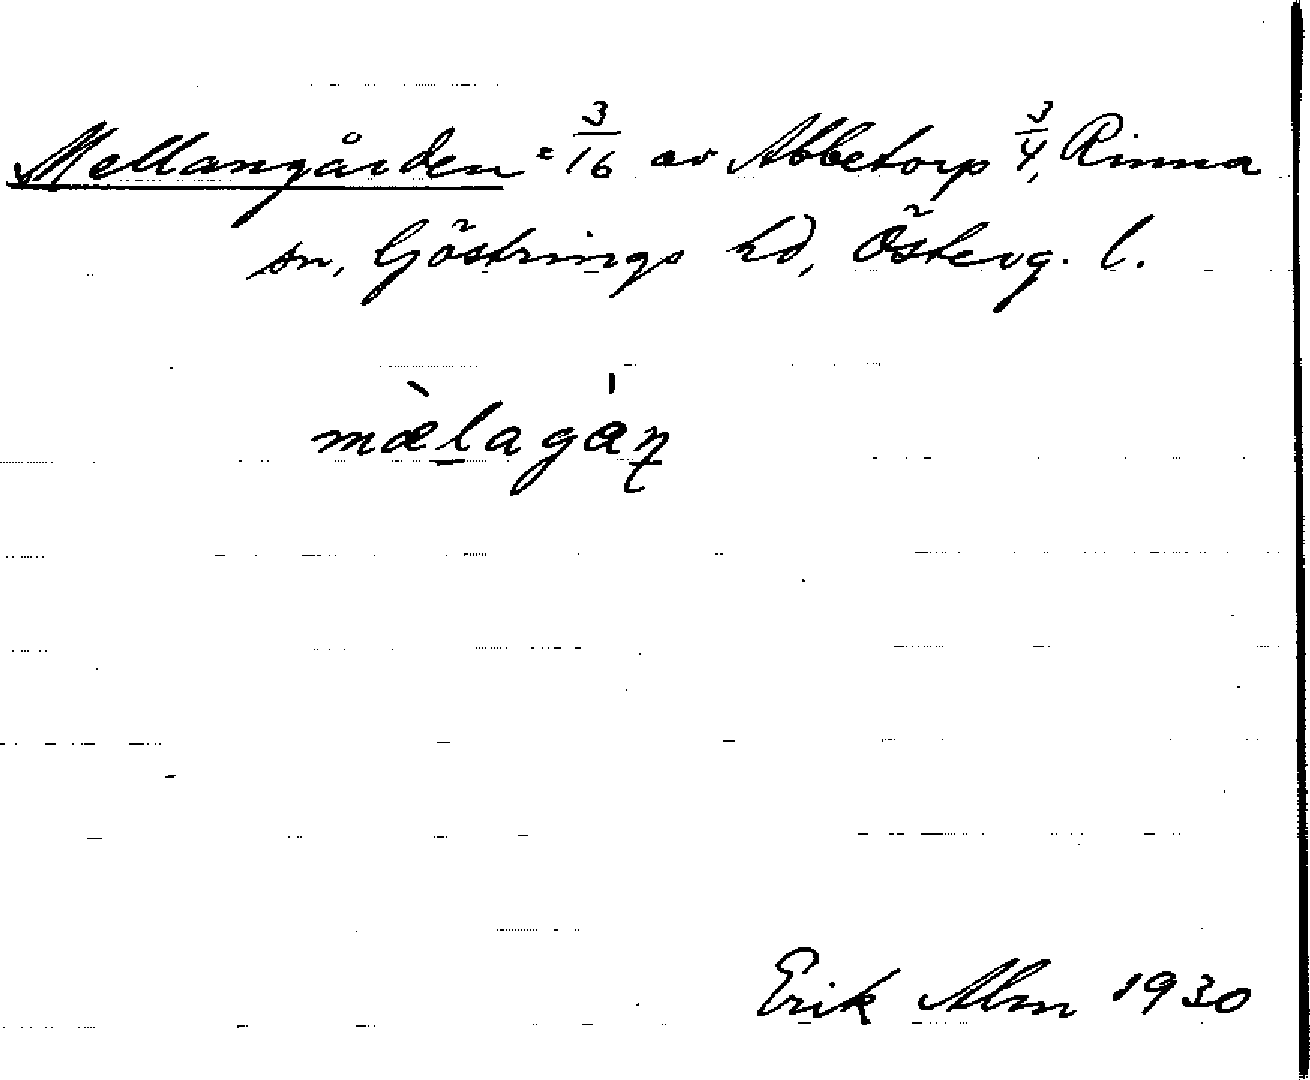 Mellangården = 3/16 av Abbetorp 3/4, Rinna
sn, Göstrings hd, Österg. l.
mæ̀lagá̱ɳ
Erik Alm 1930